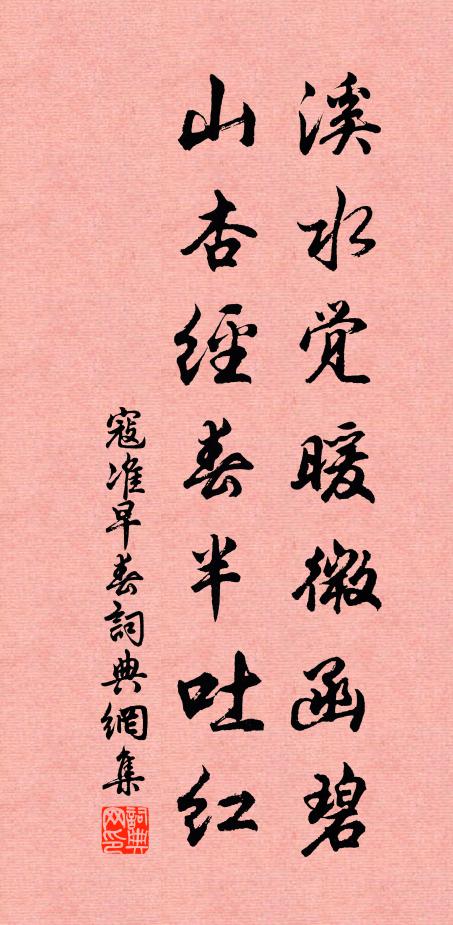 溪水觉暖微函碧
山杏經春半吐红
寇准早春詞典網集
詞典网印